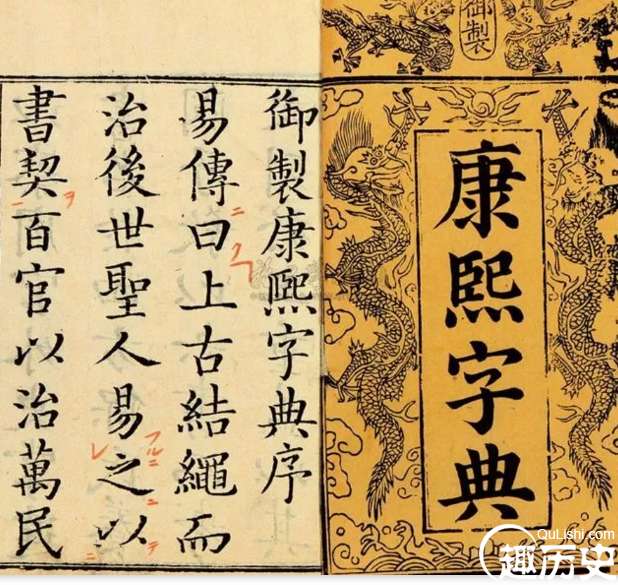 御製
康熙字典
御製康熙字典序
易傳曰上古結繩而
治後世聖人易之以
書契百官以治萬民
ニ
フルニ
レ
ニ
ニ
テ
ヲ
ニ
QuLishi.com
趣历史